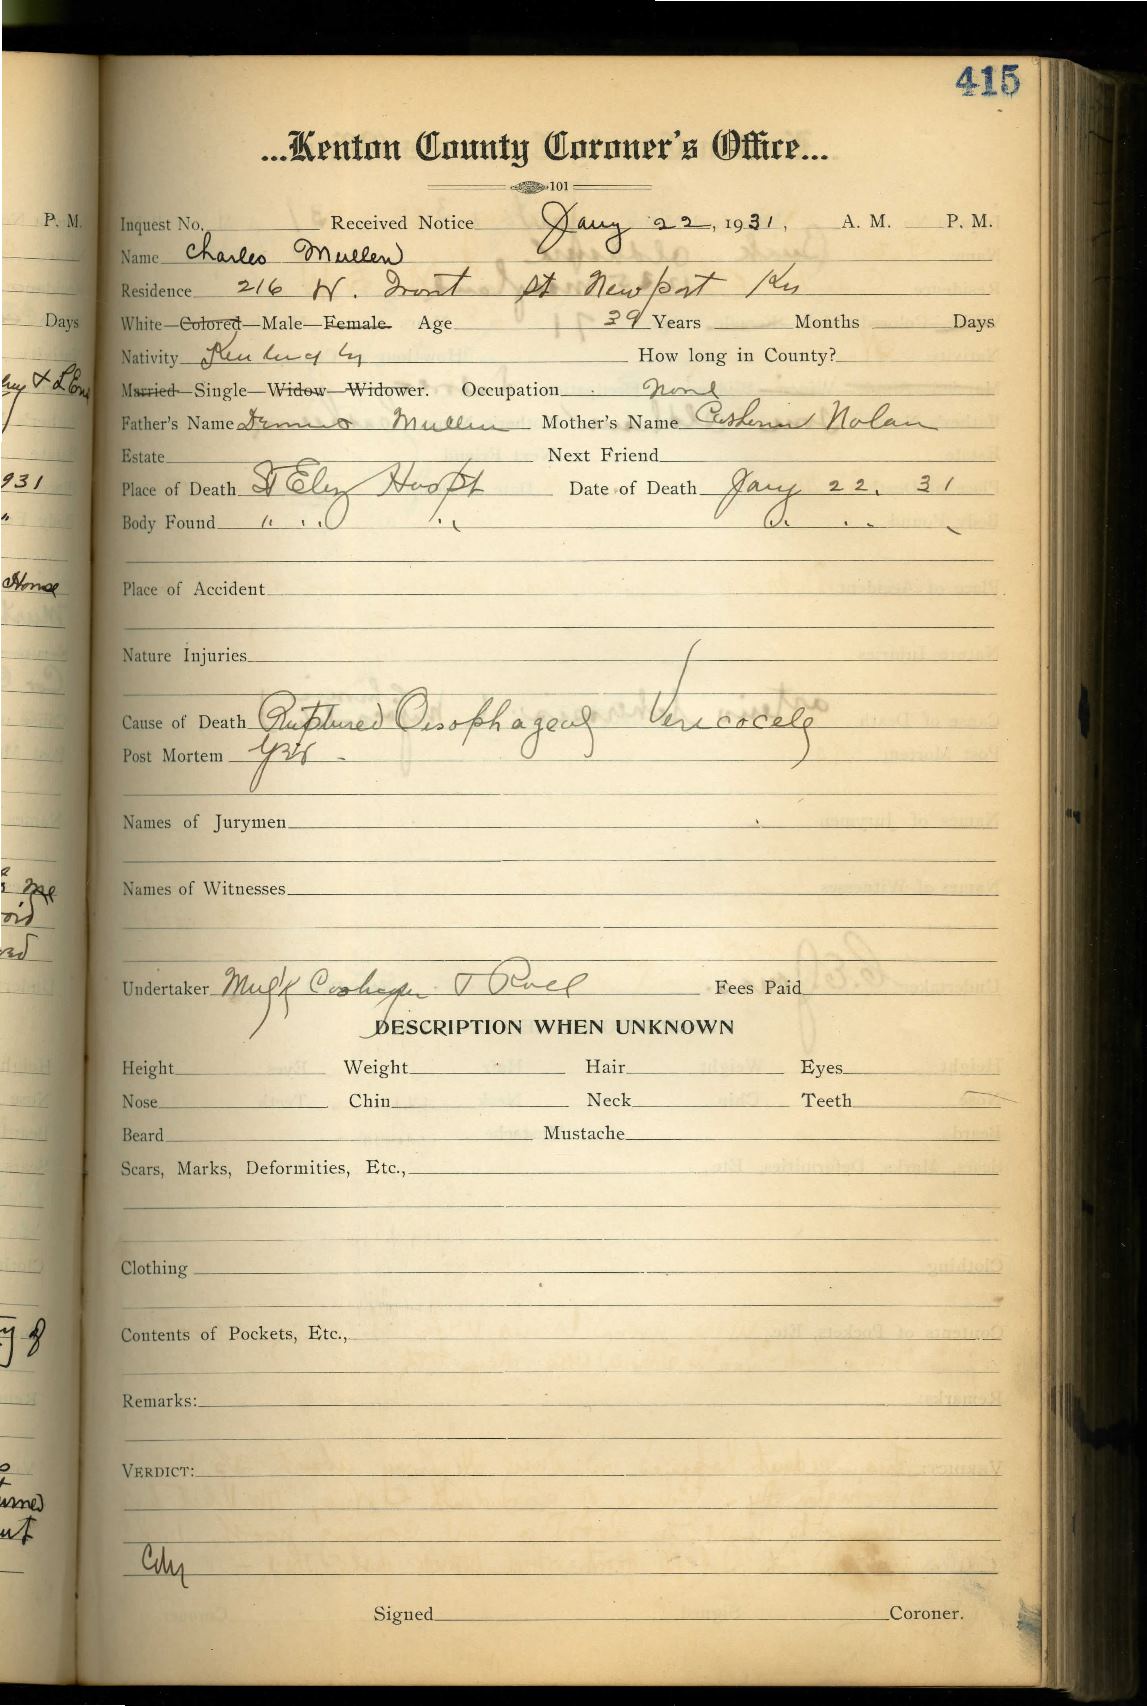 415
...Kenton County Coroner's Office...
101
Inquest No. Received Notice Jany 22, 1931, A. M. P. M.
Name Charles Mullen
Residence 216 W. Front St Newport Ky
White—Colored—Male—Female. Age 39 Years Months Days
Nativity Kentucky How long in County?
Married—Single—Widow—Widower. Occupation None
Father's Name Dennis Mullen Mother's Name Catherine Nolan
Estate Next Friend
Place of Death St Eliz Hospt Date of Death Jany 22, 31
Body Found " " " " " "
Place of Accident
Nature Injuries
Cause of Death Ruptured Oesophageal Vericocele
Post Mortem yes.
Names of Jurymen
Names of Witnesses
Undertaker Fees Paid
DESCRIPTION WHEN UNKNOWN
Height Weight Hair Eyes
Nose Chin Neck Teeth
Beard Mustache
Scars, Marks, Deformities, Etc.,
Clothing
Contents of Pockets, Etc.,
Remarks:
VERDICT:
Signed Coroner.
P. M.
Days
931
"
Home